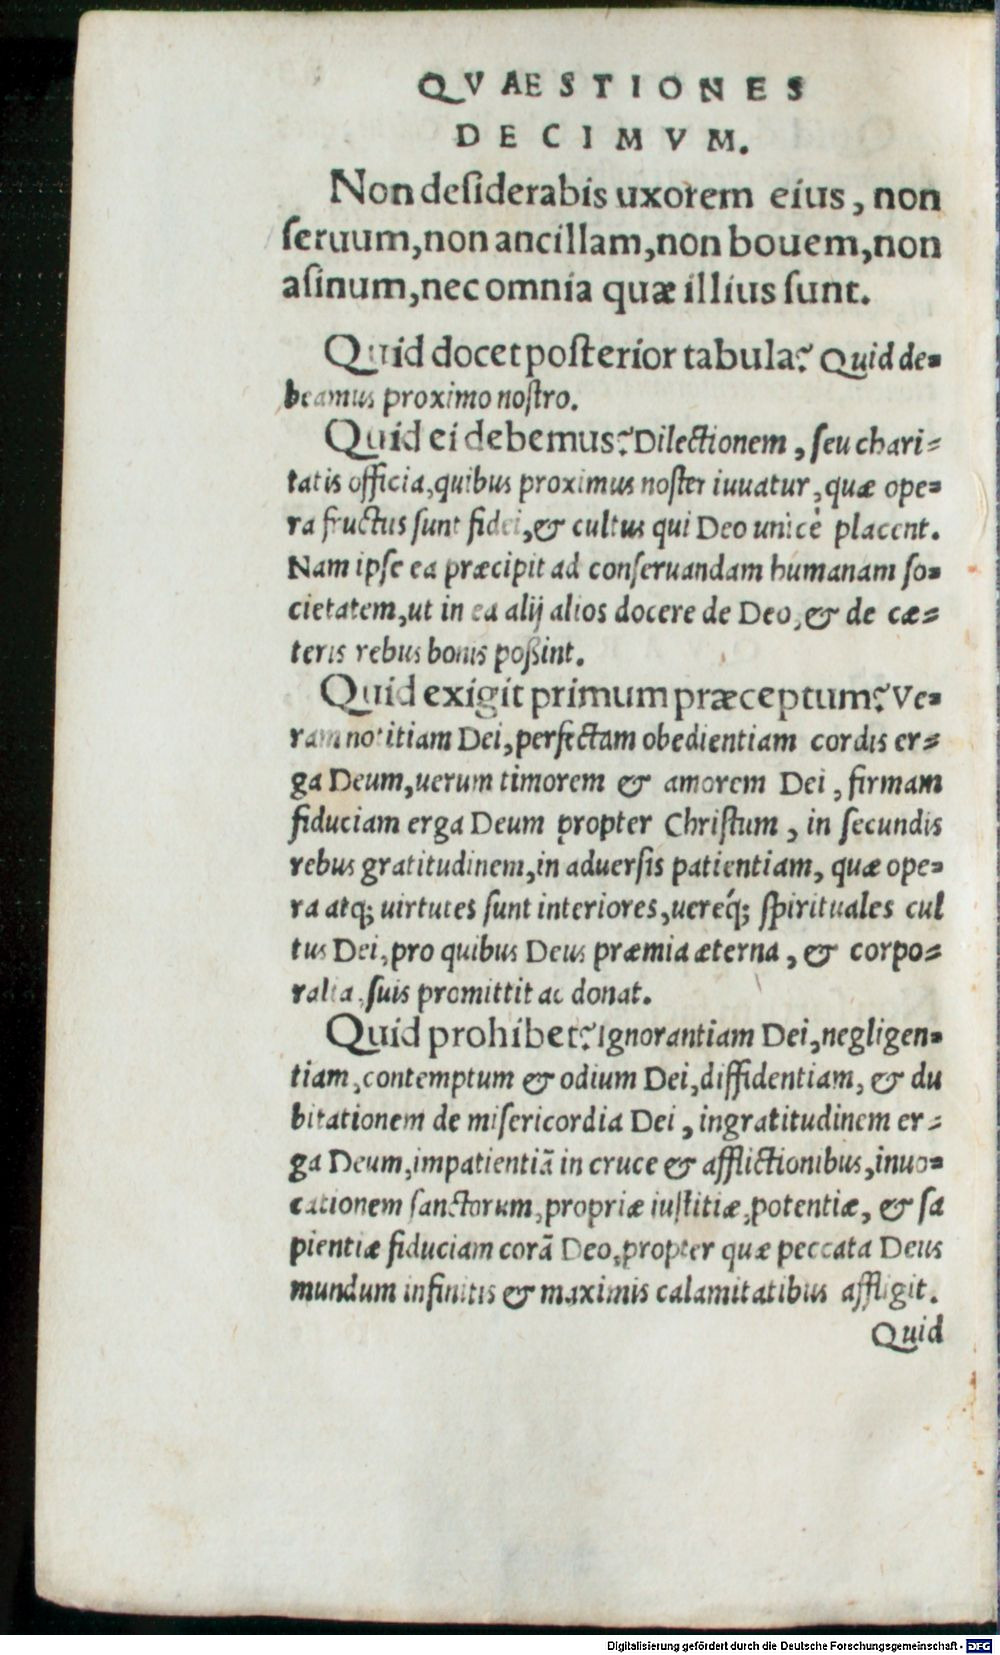 QVAESTIONES
DECIMVM.
Non deſiderabis uxorem eius, non
ſeruum, non ancillam, non bouem, non
aſinum, nec omnia quæ illius ſunt.
Quid docet poſterior tabula? Quid de-
beamus proximo noſtro.
Quid ei debemus? Dilectionem, ſeu chari-
tatis officia, quibus proximus noſter iuuatur, quæ ope-
ra fructus ſunt fidei, & cultus qui Deo unicè placent.
Nam ipſe ea præcipit ad conſeruandam humanam ſo-
cietatem, ut in ea alij alios docere de Deo, & de cæ-
teris rebus bonis poßint.
Quid exigit primum præceptum? Ve-
ram notitiam Dei, perfectam obedientiam cordis er-
ga Deum, uerum timorem & amorem Dei, firmam
fiduciam erga Deum propter Chriſtum, in ſecundis
rebus gratitudinem, in aduerſis patientiam, quæ ope-
ra atq; uirtutes ſunt interiores, uereq́; ſpirituales cul
tus Dei, pro quibus Deus præmia æterna, & corpo-
ralia, ſuis promittit ac donat.
Quid prohibet? Ignorantiam Dei, negligen-
tiam, contemptum & odium Dei, diffidentiam, & du
bitationem de miſericordia Dei, ingratitudinem er-
ga Deum, impatientiã in cruce & afflictionibus, inuo-
cationem ſanctorum, propriæ iuſtitiæ, potentiæ, & ſa
pientiæ fiduciam corã Deo, propter quæ peccata Deus
mundum infinitis & maximis calamitatibus affligit.
Quid
Digitalisierung gefördert durch die Deutsche Forschungsgemeinschaft - DFG